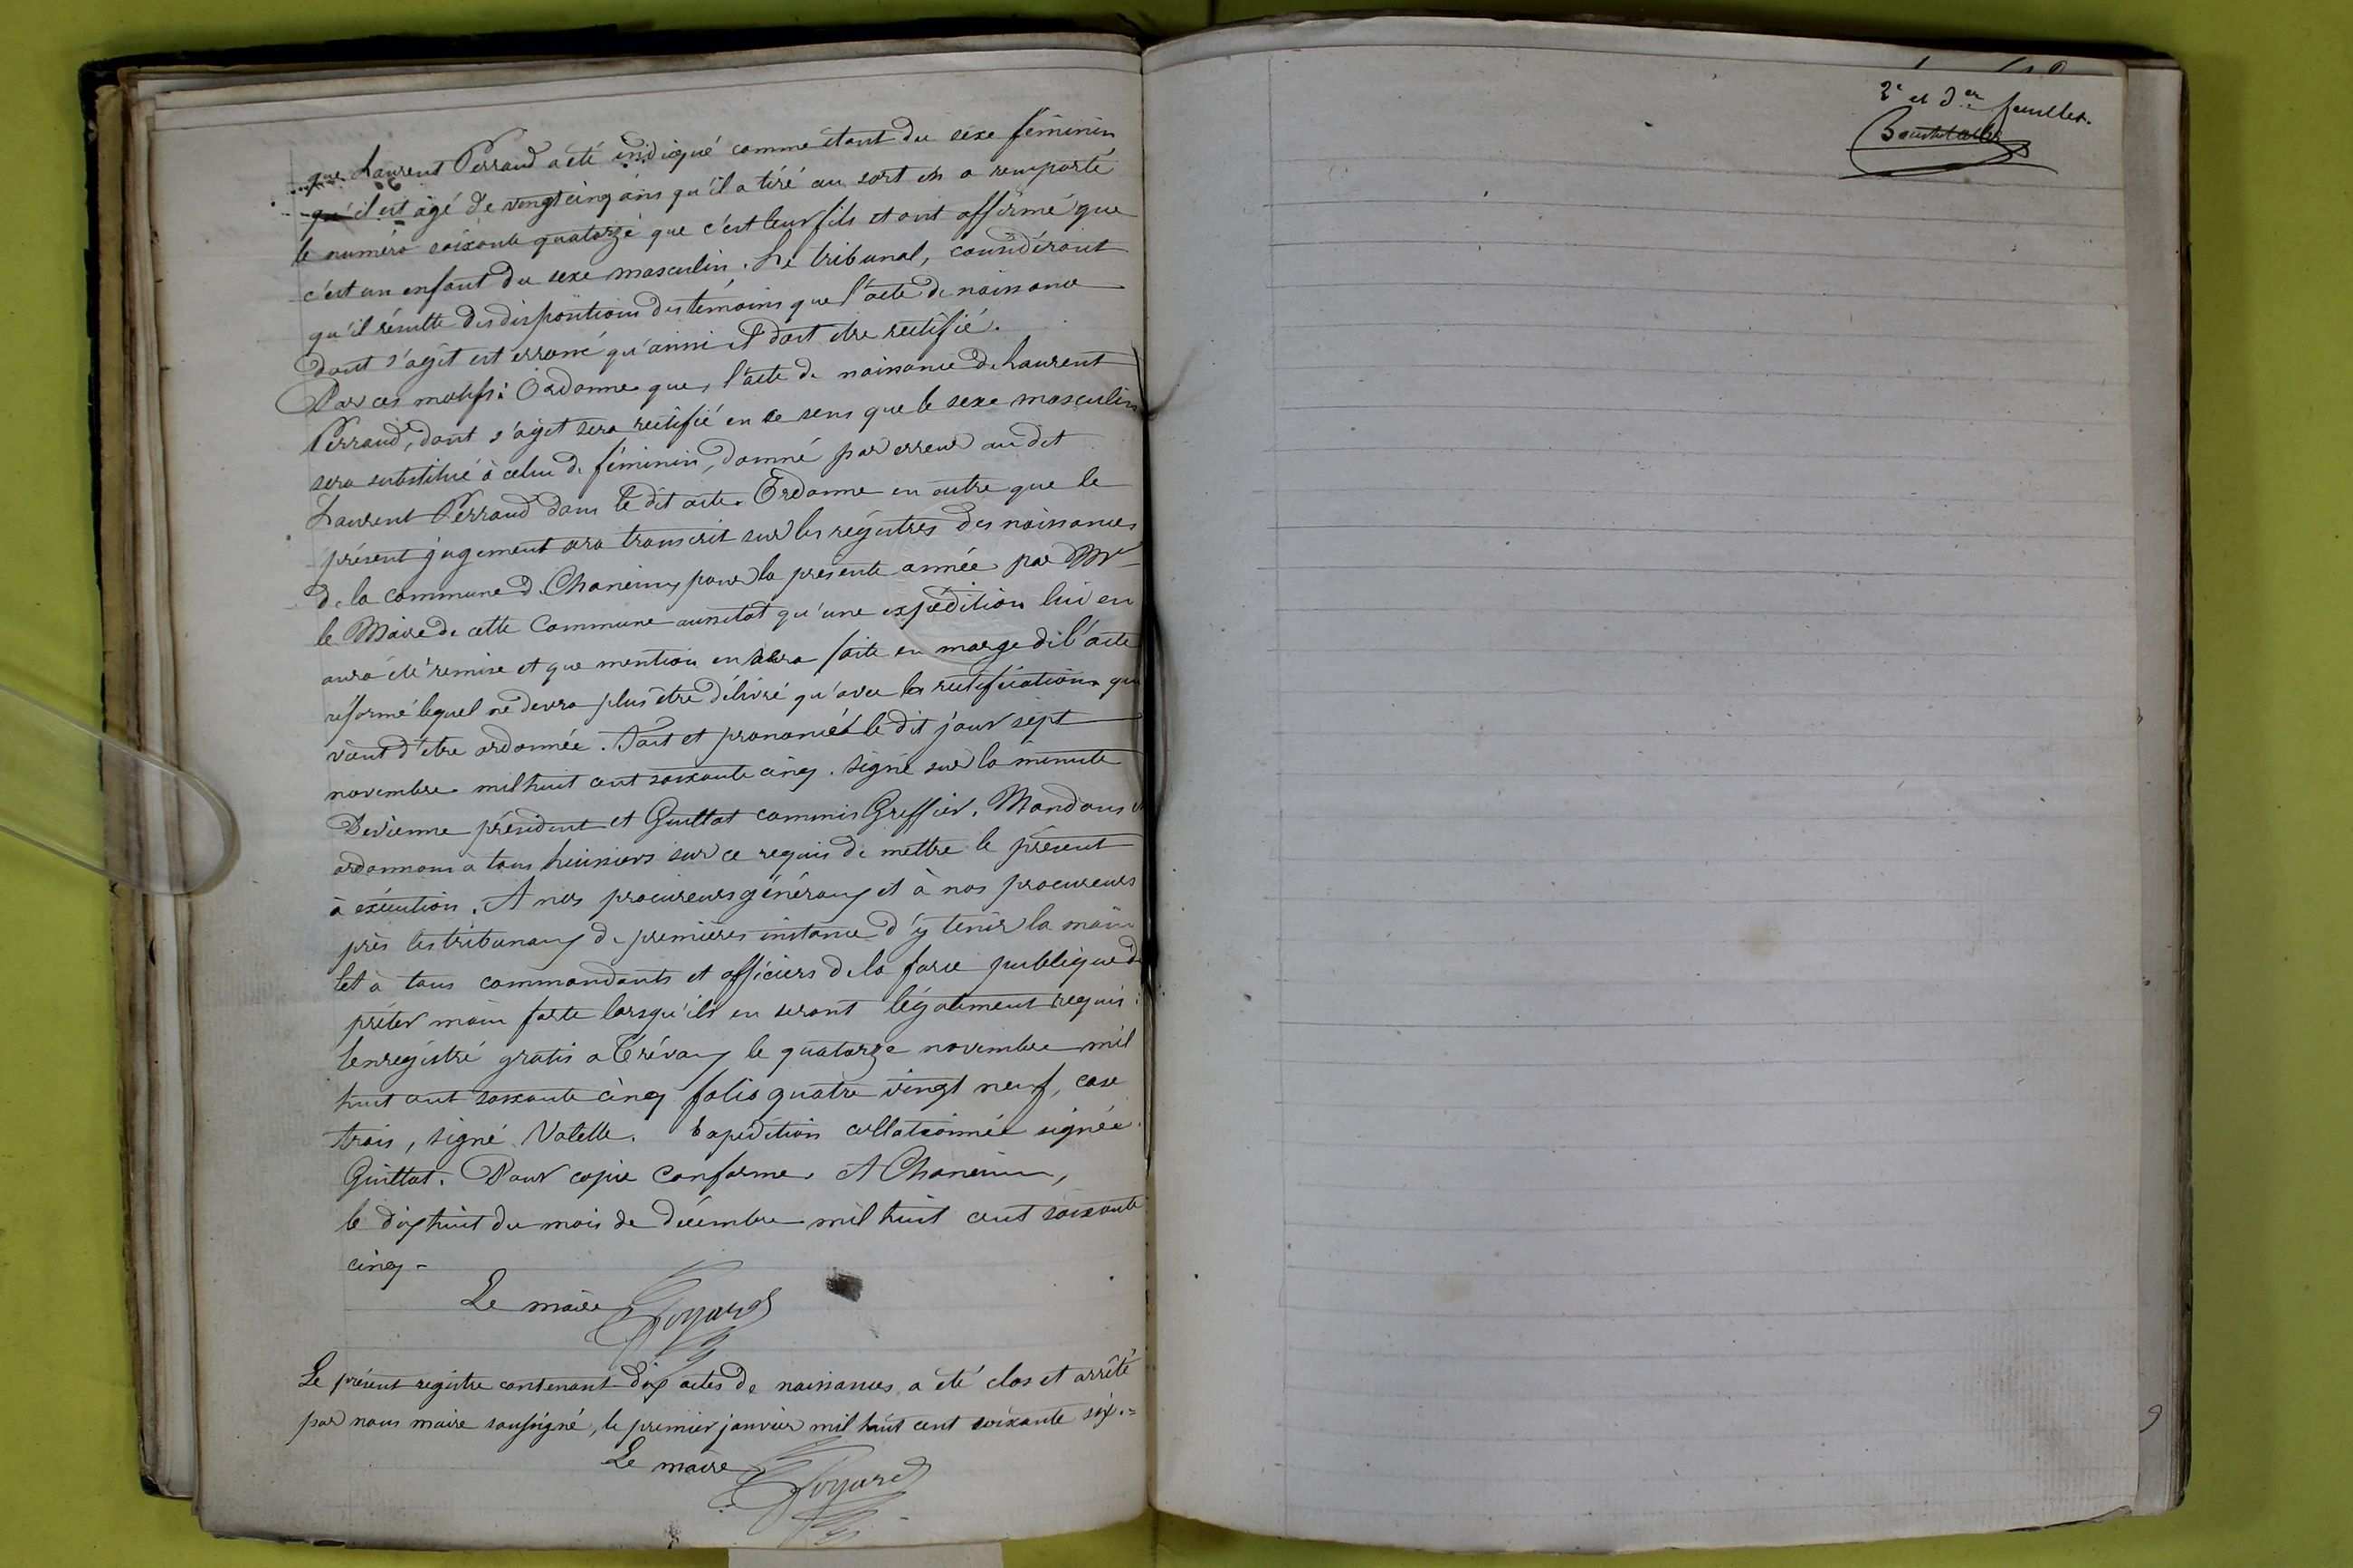 que Laurent Perraud a été indiqué comme étant du sexe féminin
qu'il est âgé de vingt cinq ans qu'il a tiré au sort et a remporté
le numéro soixante quatorze que c'est leur fils et ont affirmé que
c'est un enfant du sexe masculin. Le tribunal, considérant
qu'il résulte des dispositions des témoins que l'acte de naissance
dont s'agit est erroné qu'ainsi il doit être rectifié.
Par ces motifs: Ordonne que, l'acte de naissance de Laurent
Perraud, dont s'agit sera rectifié en ce sens que le sexe masculin
sera substitué à celui de féminin, donné par erreur au dit
Laurent Perraud dans le dit acte. Ordonne en outre que le
présent jugement sera transcrit sur les registres des naissances
de la commune de Chaneins pour la présente année par Mr
le Maire de cette Commune aussitot qu'une expédition lui en
aura été remise et que mention en sera faite en marge de l'acte
réformé lequel ne devra plus être délivré qu'avec la rectification qui
vient d'être ordonnée. Fait et prononcé le dit jour sept
novembre mil huit cent soixante cinq. Signé sur la minute
Devienne président et Guittat commis Greffier. Mandons &
ordonnons à tous huissiers sur ce requis de mettre le présent
à exécution. A nos procureurs généraux et à nos procureurs
près les tribunaux de premières instance d'y tenir la main
et à tous commandants et officiers de la force publique de
prêter main forte lorsqu'ils en seront légalement requis:
Enregistré gratis a Trévoux le quatorze novembre mil
huit cent soixante cinq folio quatre vingt neuf, case
trois, signé Valette. Expédition collationnée signée
Guittat. Pour copie conforme. A Chaneins,
le dix huit du mois de décembre mil huit cent soixante
cinq.
Le maire
Le présent registre contenant dix actes de naissances, a été clos et arrêté
par nous maire soussigné, le premier janvier mil huit cent soixante six.=
Le maire
2e et der feuillet.